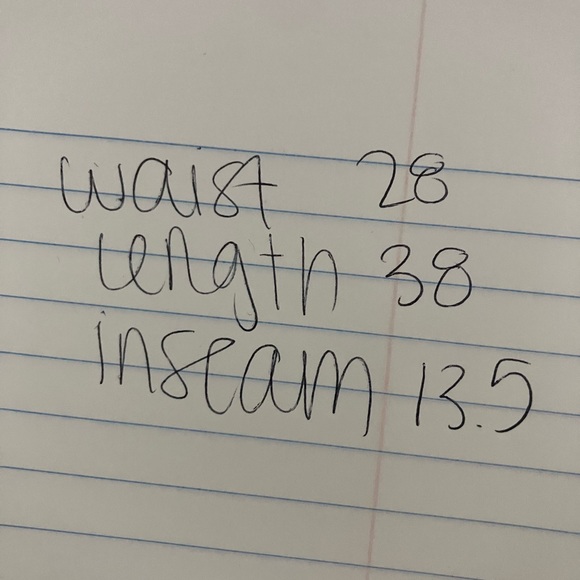 waist 28
length 38
inseam 13.5